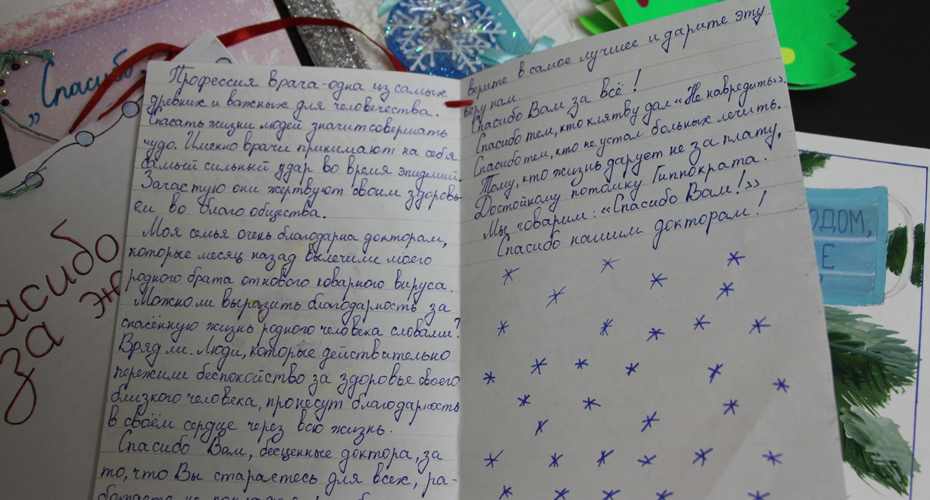 "Спасибо
Профессия врача-одна из самых
древних и важных для человечества.
Спасать жизни людей значит совершать
чудо. Именно врачи принимают на себя
самый сильный удар во время эпидемий.
Зачастую они жертвуют своим здоровь-
ем во благо общества.
Моя семья очень благодарна докторам,
которые месяц назад вылечили моего
родного брата от нового коварного вируса.
Можно ли выразить благодарность за
спасённую жизнь родного человека словами?
Вряд ли. Люди, которые действительно
пережили беспокойство за здоровье своего
близкого человека, пронесут благодарность
в своём сердце через всю жизнь.
Спасибо Вам, бесценные доктора, за
то, что Вы стараетесь для всех, ра-
верите в самое лучшее и дарите эту
веру нам.
Спасибо Вам за всё!
Спасибо тем, кто клятву дал «Не навредить».
Спасибо тем, кто не устал больных лечить.
Тому, кто жизнь дарует не за плату,
Достойному потомку Гиппократа.
Мы говорим: «Спасибо Вам!»
Спасибо нашим докторам!
асибо
за